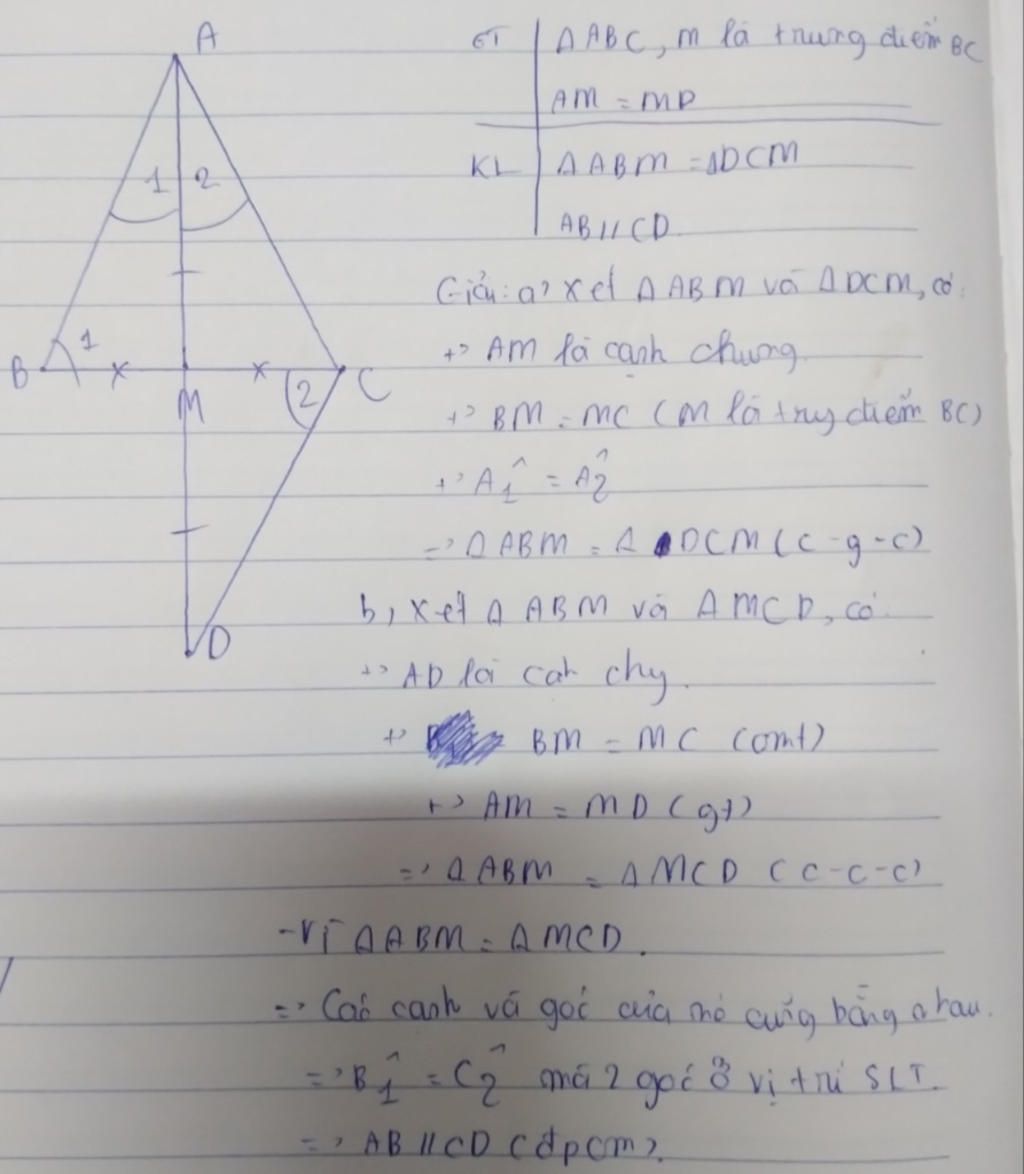 A
GT ΔABC, M là trung điểm BC
AM = MD
KL ΔABM = ΔDCM
AB // CD
1 2
Giải: a, Xét ΔABM và ΔDCM, có:
B 1 M 2 C
+> AM là cạnh chung.
+> BM = MC (M là trug điểm BC)
+> A1^ = A2^
=> ΔABM = ΔDCM (c-g-c)
b, Xét ΔABM và ΔMCD, có:
D
+> AD là cah chg.
+> BM = MC (cmt)
+> AM = MD (gt)
=> ΔABM = ΔMCD (c-c-c)
- Vì ΔABM = ΔMCD.
=> Các cạnh và góc của nó cũng bằng nhau.
=> B1^ = C2^ mà 2 góc ở vị trí SLT.
=> AB // CD (đpcm).